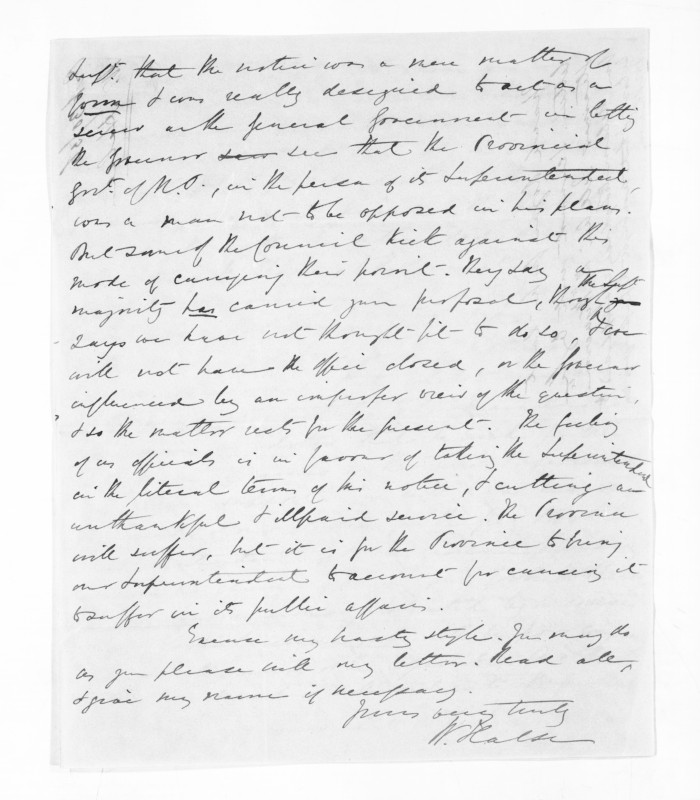 Supt. that the notice was a mere matter of
form & was really designed to act as a
screw on the General Government in letting
the Governor see that the Provincial
Govt. of N.P., in the person of its Superintendent,
was a man not to be opposed in his plans.
But some of the Council kick against this
mode of carrying their point. They say a
majority has carried your proposal, though the Supt.
says we have not thought fit to do so, & we
will not have the office closed, or the Governor
influenced by an improper view of the question,
& so the matter rests for the present. The feeling
of us officials is in favour of taking the Superintendent
in the literal terms of his notice, & cutting an
unthankful & illpaid service. The Province
will suffer, but it is for the Province to bring
our Superintendent to account for causing it
to suffer in its public affairs.
Excuse my hasty style. You may do
as you please with my letter. Read all,
& give my name if necessary.
Yours very truly
W. Halse